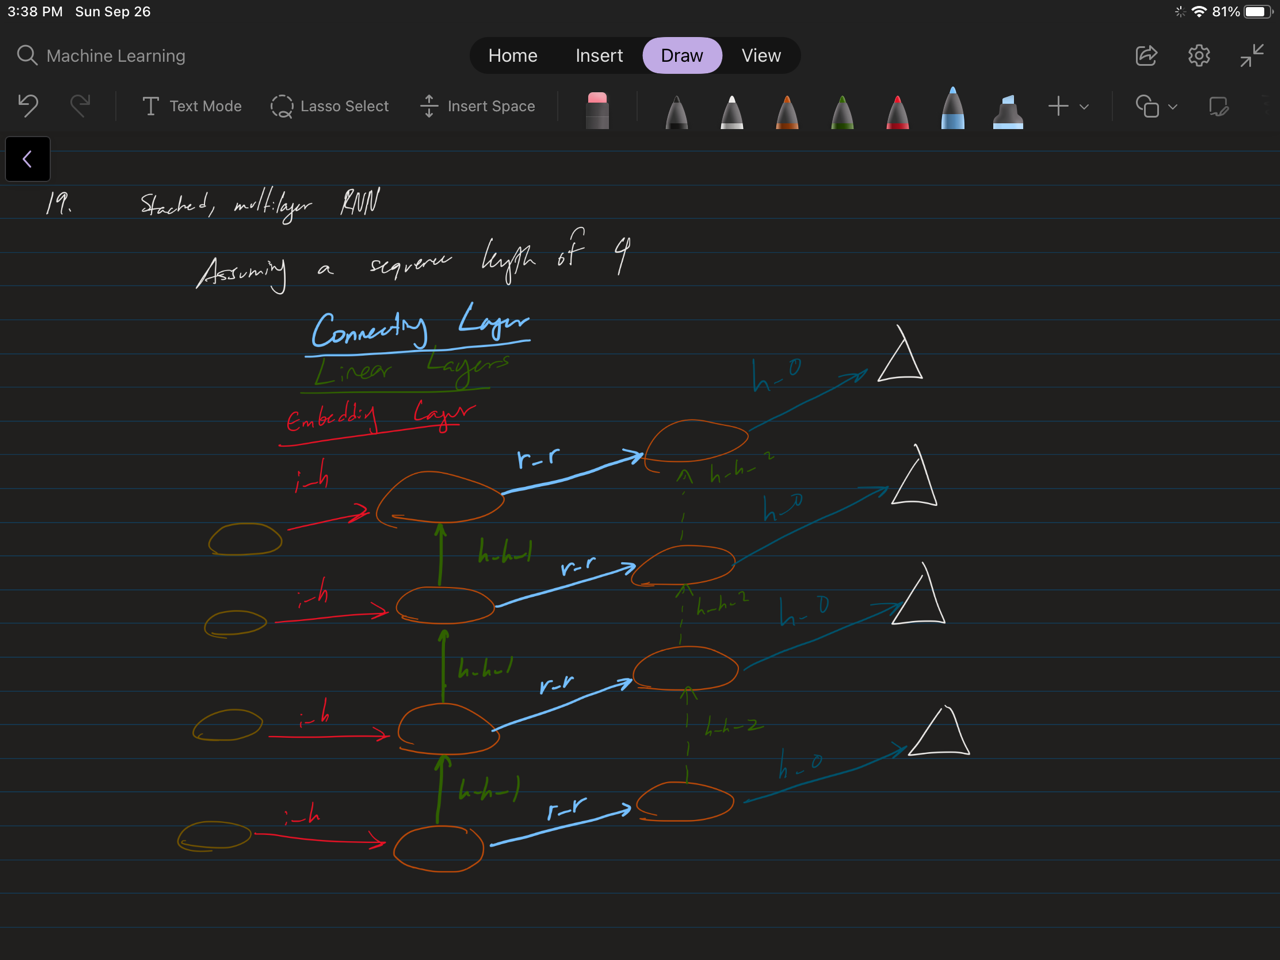 3:38 PM Sun Sep 26
81%
Machine Learning
Home Insert Draw View
Text Mode Lasso Select Insert Space
19. Stacked, multilayer RNN
Assuming a sequence length of 4
Connecting Layer
Linear Layers
Embedding Layer
h-o
r-r
h-h-2
i-h
h-o
h-h-1
r-r
i-h
h-h-2
h-o
h-h-1
r-r
i-h
h-h-2
h-o
h-h-1
r-r
i-h